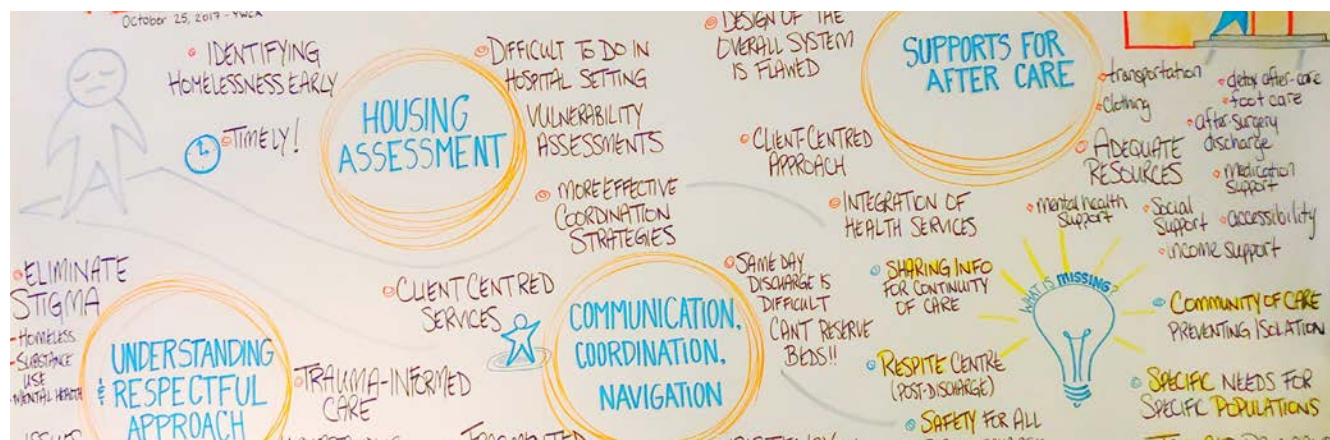 October 25, 2017 - YWCA
IDENTIFYING
HOMELESSNESS EARLY
TIMELY!
HOUSING
ASSESSMENT
DIFFICULT TO DO IN
HOSPITAL SETTING
VULNERABILITY
ASSESSMENTS
MORE EFFECTIVE
COORDINATION
STRATEGIES
DESIGN OF THE
OVERALL SYSTEM
IS FLAWED
CLIENT-CENTRED
APPROACH
INTEGRATION OF
HEALTH SERVICES
SUPPORTS FOR
AFTER CARE
transportation
clothing
ADEQUATE
RESOURCES
detox after-care
foot care
after-surgery
discharge
medication
support
mental health
support
Social
Support
accessibility
income support
ELIMINATE
STIGMA
- HOMELESS
- SUBSTANCE
USE
- MENTAL HEALTH
UNDERSTANDING
& RESPECTFUL
APPROACH
CLIENT CENTRED
SERVICES
TRAUMA-INFORMED
CARE
COMMUNICATION,
COORDINATION,
NAVIGATION
SAME DAY
DISCHARGE IS
DIFFICULT
CAN'T RESERVE
BEDS!!
SHARING INFO
FOR CONTINUITY
OF CARE
RESPITE CENTRE
(POST-DISCHARGE)
SAFETY FOR ALL
WHAT IS MISSING?
COMMUNITY OF CARE
PREVENTING ISOLATION
SPECIFIC NEEDS FOR
SPECIFIC POPULATIONS